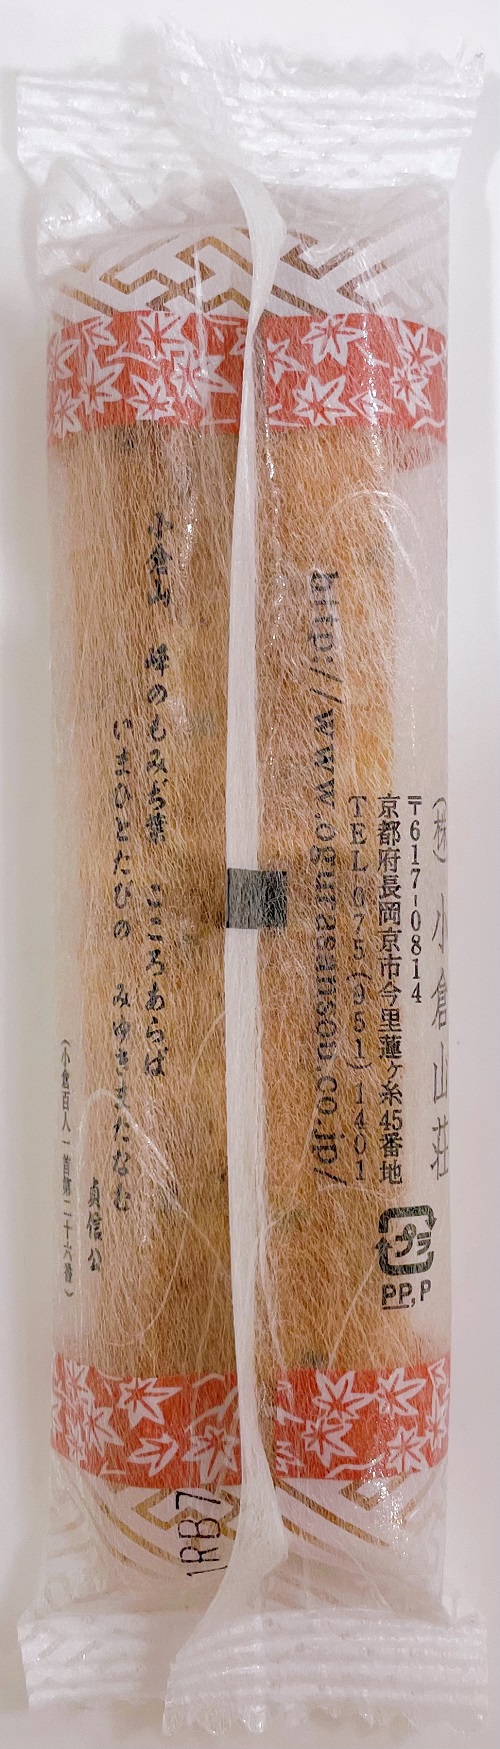 (株)小倉山荘
〒617-0814
京都府長岡京市今里蓮ヶ糸45番地
TEL075(951)1401
http://www.ogurasansou.co.jp/
小倉山 峰のもみぢ葉 こころあらば
いまひとたびの みゆきまたなむ
貞信公
(小倉百人一首第二十六番)
プラ
PP,P
1RB7